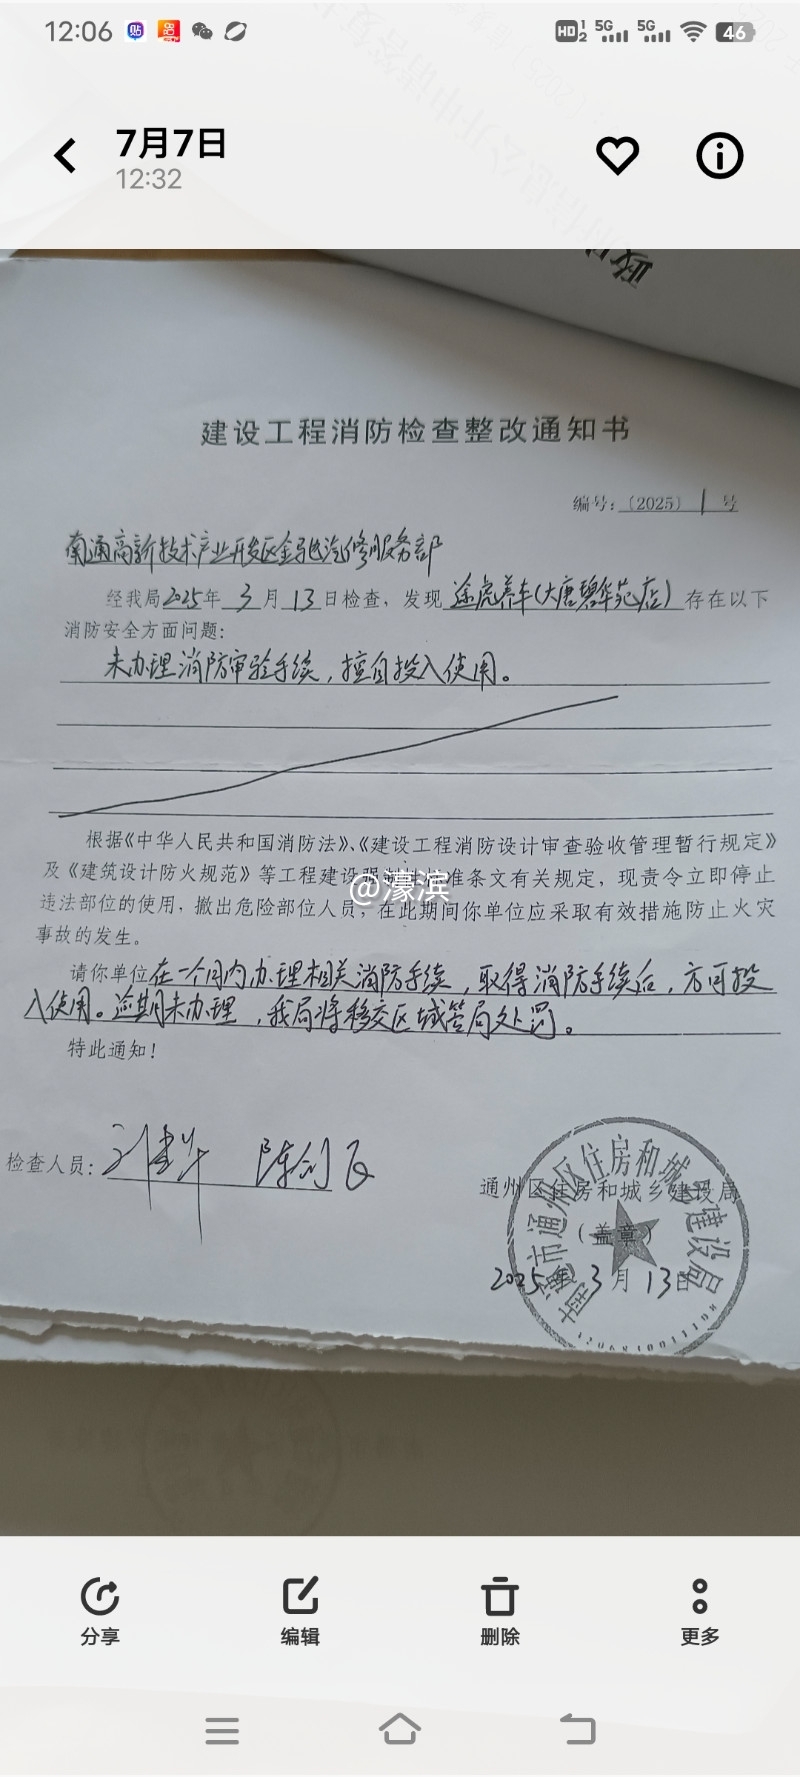 12:06
HD 1 2 5G 5G 46
7月7日
12:32
建设工程消防检查整改通知书
编号：〔2025〕1号
南通高新技术产业开发区金驰汽修服务部
经我局2025年3月13日检查，发现途虎养车(大唐碧华苑店)存在以下
消防安全方面问题：
未办理消防审验手续，擅自投入使用。
根据《中华人民共和国消防法》、《建设工程消防设计审查验收管理暂行规定》
及《建筑设计防火规范》等工程建设准条文有关规定，现责令立即停止
@濠滨
违法部位的使用，撤出危险部位人员，在此期间你单位应采取有效措施防止火灾
事故的发生。
请你单位在一个月内办理相关消防手续，取得消防手续后，方可投
入使用。逾期未办理，我局将移交区城管局处罚。
特此通知！
检查人员：
通州区住房和城乡建设局
（盖章）
2025年3月13日
南通市通州区住房和城乡建设局
分享
编辑
删除
更多